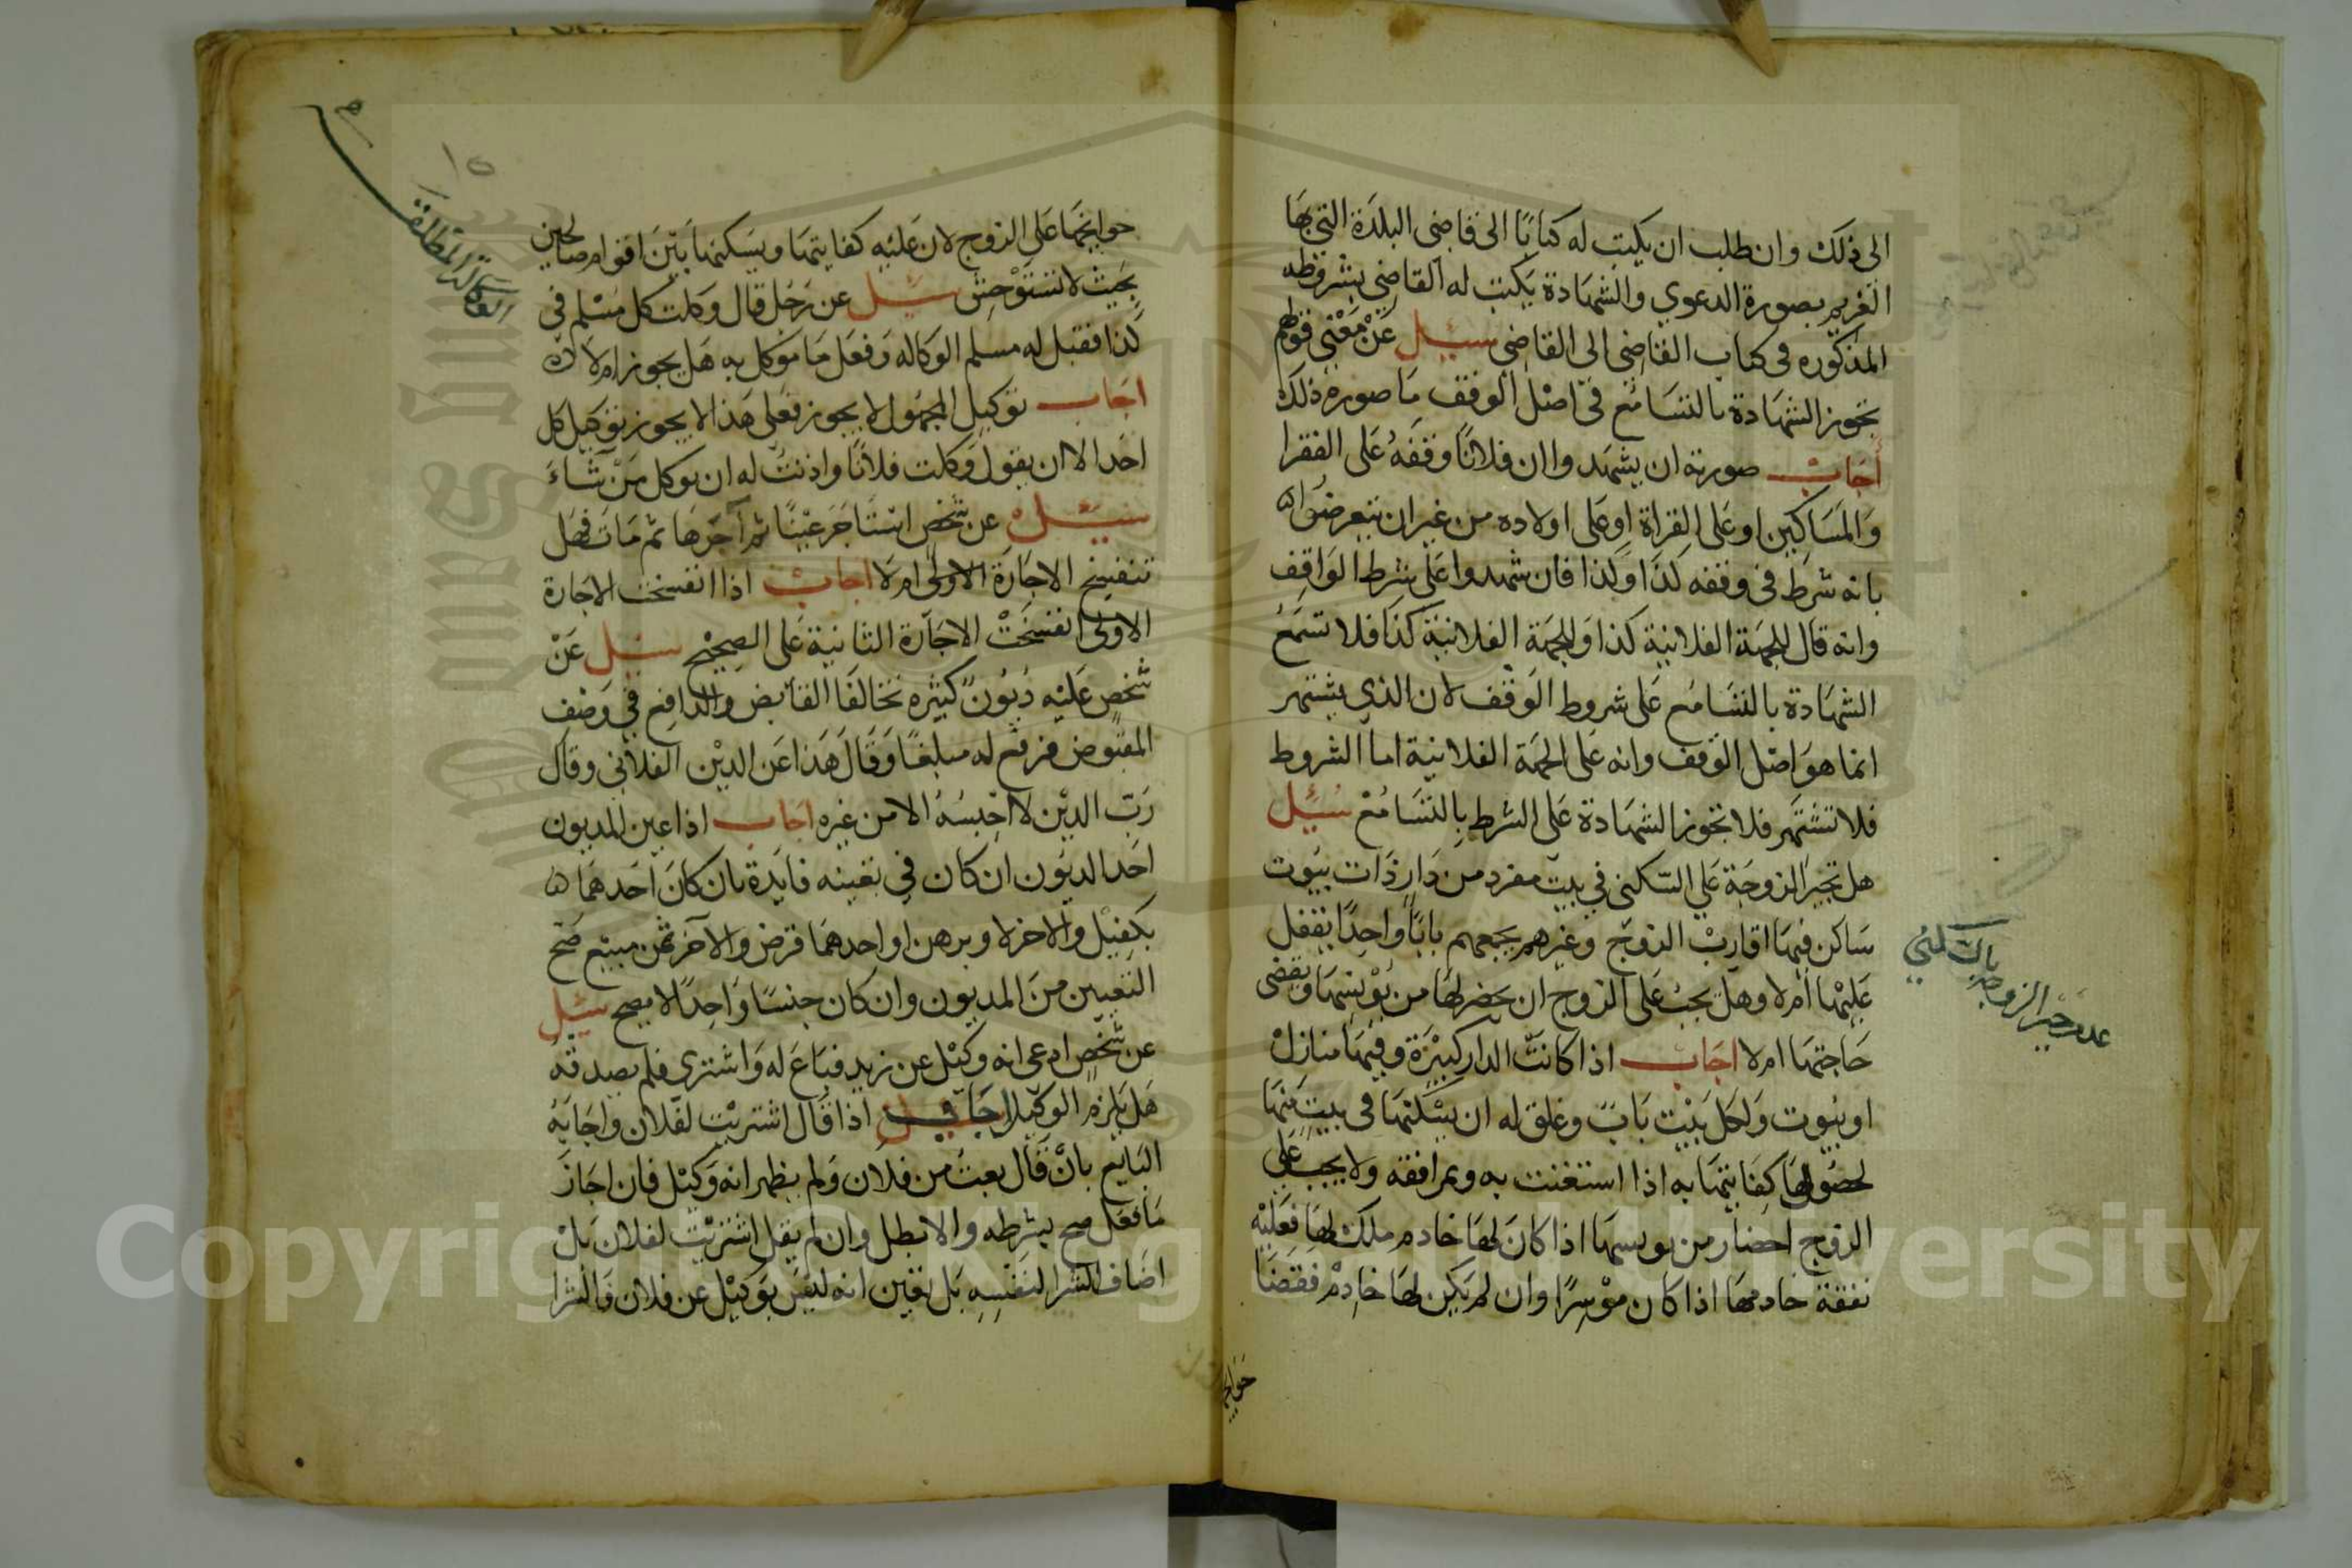 الى ذلك وان طلب ان يكتب له كتابًا الى قاضي البلدة التي بها
الغريم بصورة الدعوي والشهادة يكتب له القاضي بشروطه
المذكوره في كتاب القاضي الى القاضي سئيل عن معنى قولهم
تجوز الشهادة بالتسامع في اصل الوقف ما صورة ذلك
أجاب صورته ان يشهدوا ان فلانًا وقفه على الفقرا
والمساكين او على القراة او على اولاده من غير ان يتعرضوا
بانه شرط في وقفه كذا وكذا فان شهدوا على شرط الواقف
وانه قال للجهة الفلانية كذا وللجهة الفلانية كذا فلا تسمع
الشهادة بالتسامع على شروط الوقف لان الذي يشتهر
انما هو اصل الوقف وانه على الجهة الفلانية اما الشروط
فلا تشتهر فلا تجوز الشهادة على الشرط بالتسامع سئيل
هل تجبر الزوجة علي السكنى في بيت مفرد من دار ذات بيوت
ساكن فيها اقارب الزوج وغيرهم يجمعهم بابًا واحدًا يقفل
عليها أم لا وهل يجب على الزوج ان يحضر لها من يؤنسها ويقضى
حاجتها ام لا اجاب اذا كانت الدار كبيرة وفيها منازل
او بيوت ولكل بيت باب وغلق له ان يسكنها في بيت منها
لحصول كفايتها به اذا استغنت به وبمرافقه ولا يجب على
الزوج احضار من يونسها اذا كان لها خادم ملك لها فعليه
نفقة خادمها اذا كان موسرًا وان لم يكن لها خادم فقضا
حوايجها
عدم جبر الزوجة
حوايجها على الزوج لان عليه كفايتها ويسكنها بين اقوام صالحين
بحيث لا تستوحش سئيل عن رجل قال وكلت كل مسلم في
كذا فقبل له مسلم الوكاله وفعل ما موكل به هل يجوز ام لا
اجاب توكيل المجهول لا يجوز فعلى هذا لا يجوز توكيل كل
احد الا ان يقول وكلت فلانًا واذنت له ان يوكل من شاء
سئيل عن شخص استاجر عينًا ثم آجرها ثم مات فهل
تنفسخ الاجارة الاولى ام لا اجاب اذا انفسخت الاجارة
الاولى انفسخت الاجارة الثانية على الصحيح سئيل عن
شخص عليه ديون كثيره تخالفا القابض والدافع في وصف
المقبوض فدفع له مبلغًا وقال هذا عن الدين الفلاني وقال
رب الدين لا احبسه الا من غيره اجاب اذا عين المديون
احد الديون ان كان في تعيينه فايدة بان كان احدهما
بكفيل والاخر لا وبرهن او احدهما قرض والآخر ثمن مبيع صح
التعيين من المديون وان كان جنسًا واحدًا لا يصح سئيل
عن شخص ادعى انه وكيل عن زيد فباع له واشترى فلم يصدقه
هل يلزم الوكيل اجاب اذا قال اشتريت لفلان واجابه
البايع بان قال بعت من فلان ولم يظهر انه وكيل فان اجاز
ما فعل صح بشرطه والا بطل وان لم يقل اشتريت لفلان بل
اضاف الشرا لنفسه بل تقين انه ليس بوكيل عن فلان فالشرا
١٥
Copyright © King Saud University